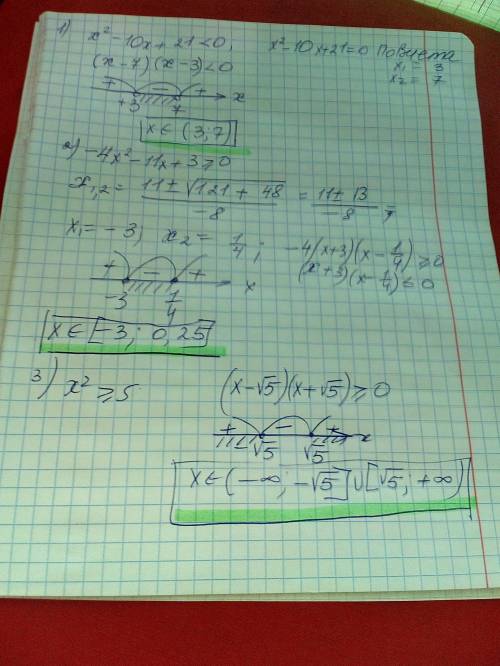 1) x² - 10x + 21 < 0, x² - 10x + 21 = 0 По Виета
(x - 7)(x - 3) < 0 x₁ = 3
x₂ = 7
+ - + x
+3 7
x ∈ (3; 7)
2) -4x² - 11x + 3 ≥ 0
x₁,₂ = (11 ± √(121 + 48))/(-8) = (11 ± 13)/(-8);
x₁ = -3; x₂ = 1/4; -4(x+3)(x - 1/4) ≥ 0
(x+3)(x - 1/4) ≤ 0
+ - + x
-3 1/4
x ∈ [-3; 0,25]
3) x² ≥ 5 (x - √5)(x + √5) ≥ 0
+ - + x
-√5 √5
x ∈ (-∞; -√5] ∪ [√5; +∞)